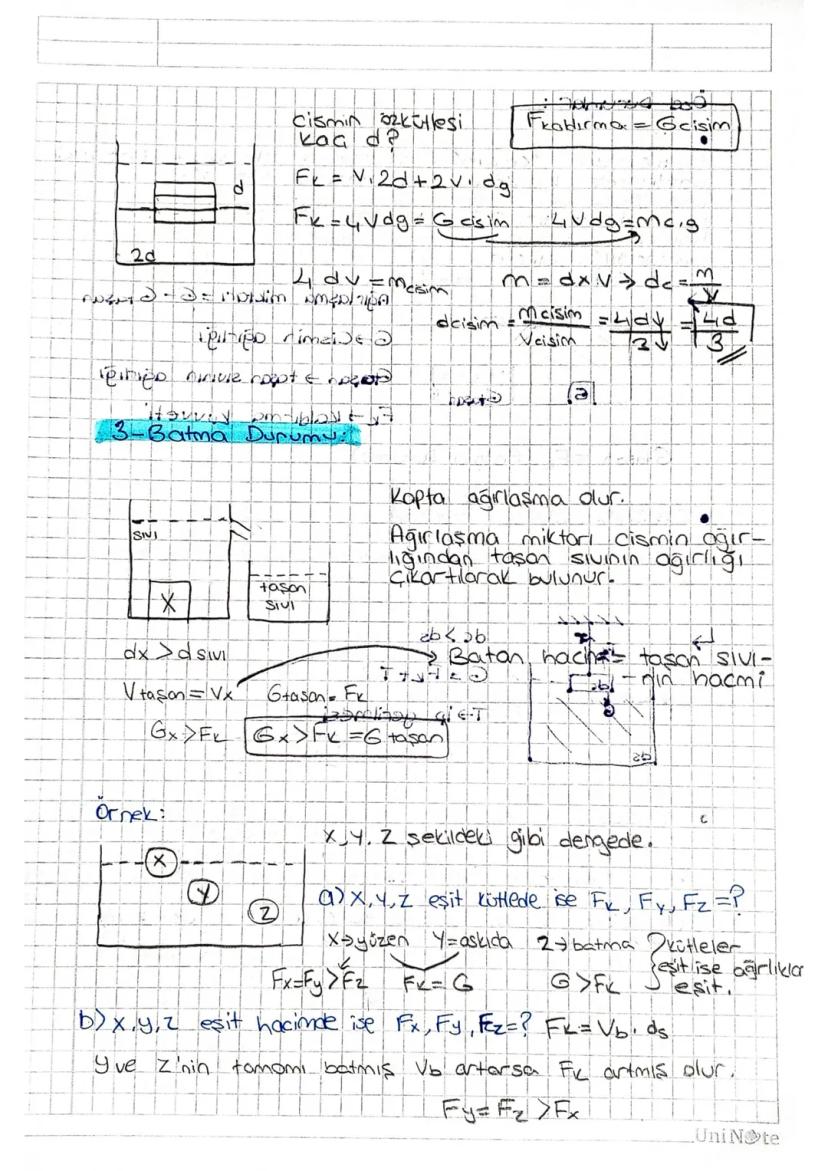 cismin özkütlesi
kaç d?
Fkaldırma = Gcisim
d
2d
Fk = V.2d+2v.dg
Fk = 4Vdg = Gcisim 4Vdg=mc.g
4dv = mcisim m = dxV → dc = m/V
dcisim = mcisim/Vcisim = 4dv/3v = 4d/3
3-Batma Durumu:
Kapta ağırlaşma olur.
Ağırlaşma miktarı cismin ağır-
lığından taşan sıvının ağırlığı
çıkartılarak bulunur.
sıvı
X
taşan
sıvı
dx > dsıvı
Batan hacim = taşan sıvı-
nın hacmi
Vtaşan = Vx Gtaşan = Fk
Gx > Fk Gx > Fk = G taşan
Örnek:
X, Y, Z şekildeki gibi dengede.
X
Y
Z
a) X, Y, Z eşit kütlede ise Fk, Fy, Fz =?
X→yüzen Y=askıda Z→batma
kütleler
eşit ise ağırlıklar
eşit.
Fx=Fy>Fz Fk = G G > Fk
b) X, y, z eşit hacimde ise Fx, Fy, Fz =? Fk = Vb. ds
Y ve Z'nin tamamı batmış Vb artarsa Fk artmış olur.
Fy = Fz > Fx
UniNote